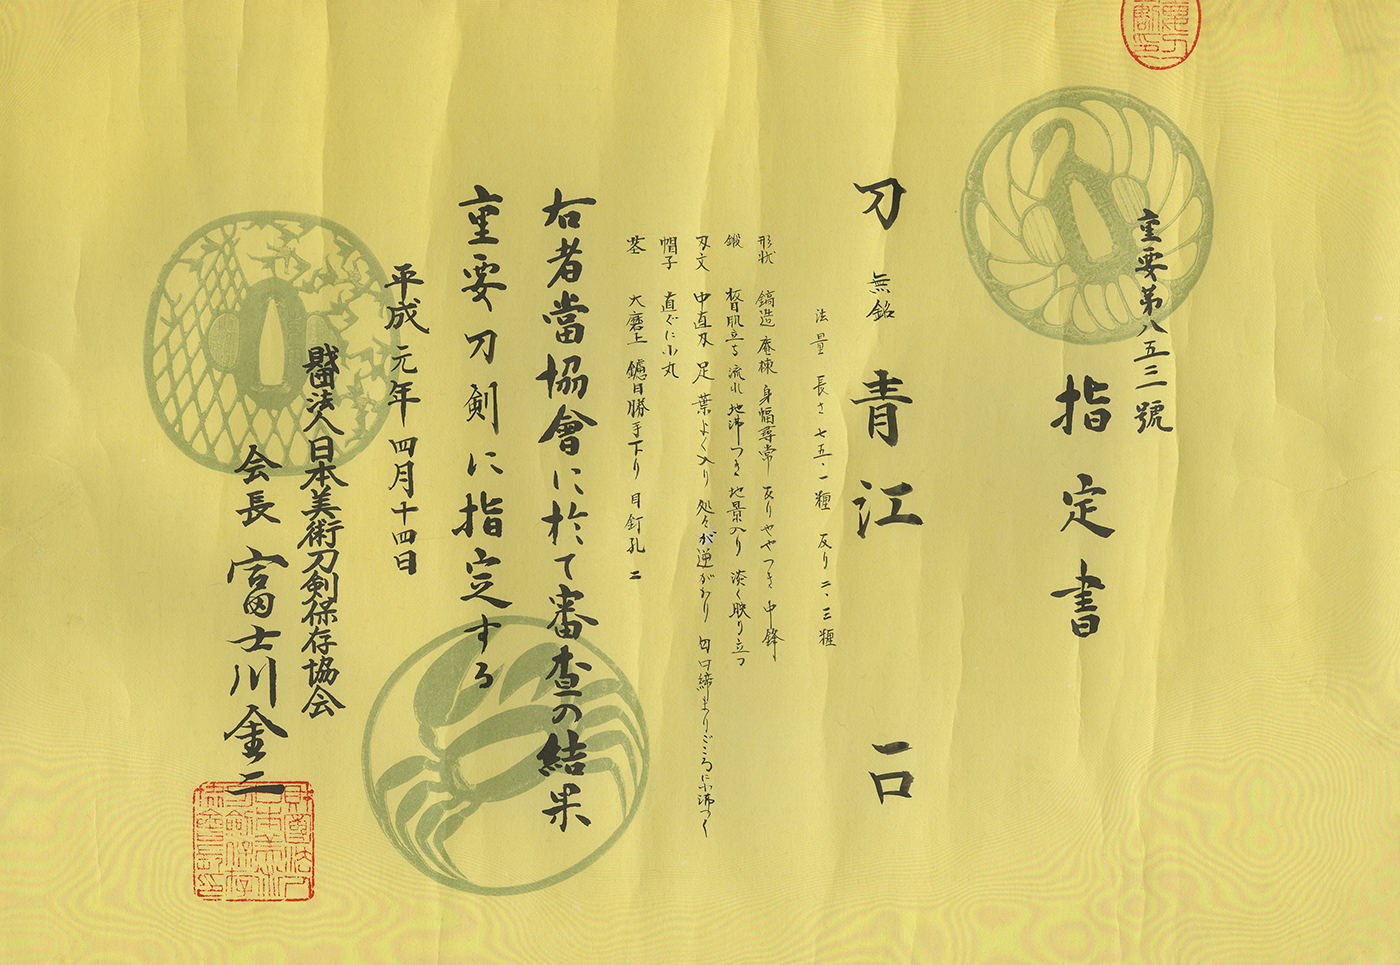 重要第八五三號
指定書
刀 無銘 青江 一口
法量 長さ 七五・一糎 反り 二・三糎
形状 鎬造 庵棟 身幅尋常 反りややつき 中鋒
鍛 板目肌立ち 流れ 地沸つき 地景入り 淡く映り立つ
刃文 中直刃 足 葉よく入り 処々が逆がかり 匂口締まりごころに小沸つく
帽子 直ぐに小丸
茎 大磨上 鑢目勝手下り 目釘孔 二
右者當協會に於て審査の結果
重要刀剣に指定する
平成元年四月十四日
財団法人日本美術刀剣保存協会
会長 富士川金二